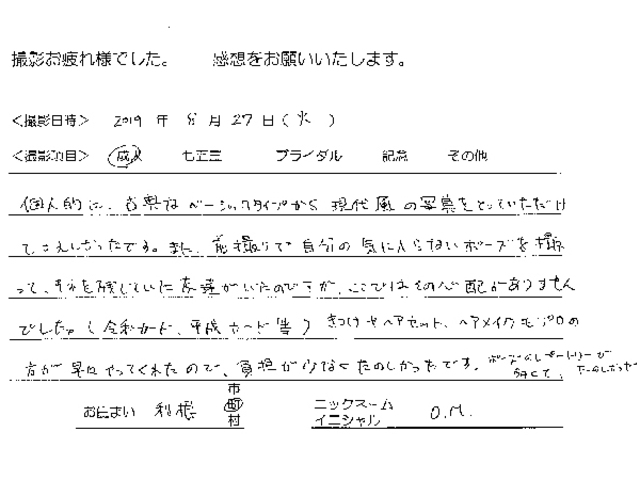 撮影お疲れ様でした。 感想をお願いいたします。
＜撮影日時＞ 2019 年 8 月 27 日（火）
＜撮影項目＞ 成人 七五三 ブライダル 記念 その他
個人的に、古典なベーシックタイプから現代風の写真をとっていただけ
てうれしかったです。また、前撮りで自分の気に入らないポーズを撮
って、それを残していた友達がいたのですが、ここではその心配がありません
でした。（令和カード、平成カード等）きつけやヘアセット、ヘアメイクもプロの
方が早くやってくれたので、負担が少なくたのしかったです。ポーズのレパートリーが
多くて、たのしかった
お住まい 利根 市町村 ニックネーム イニシャル O.M.